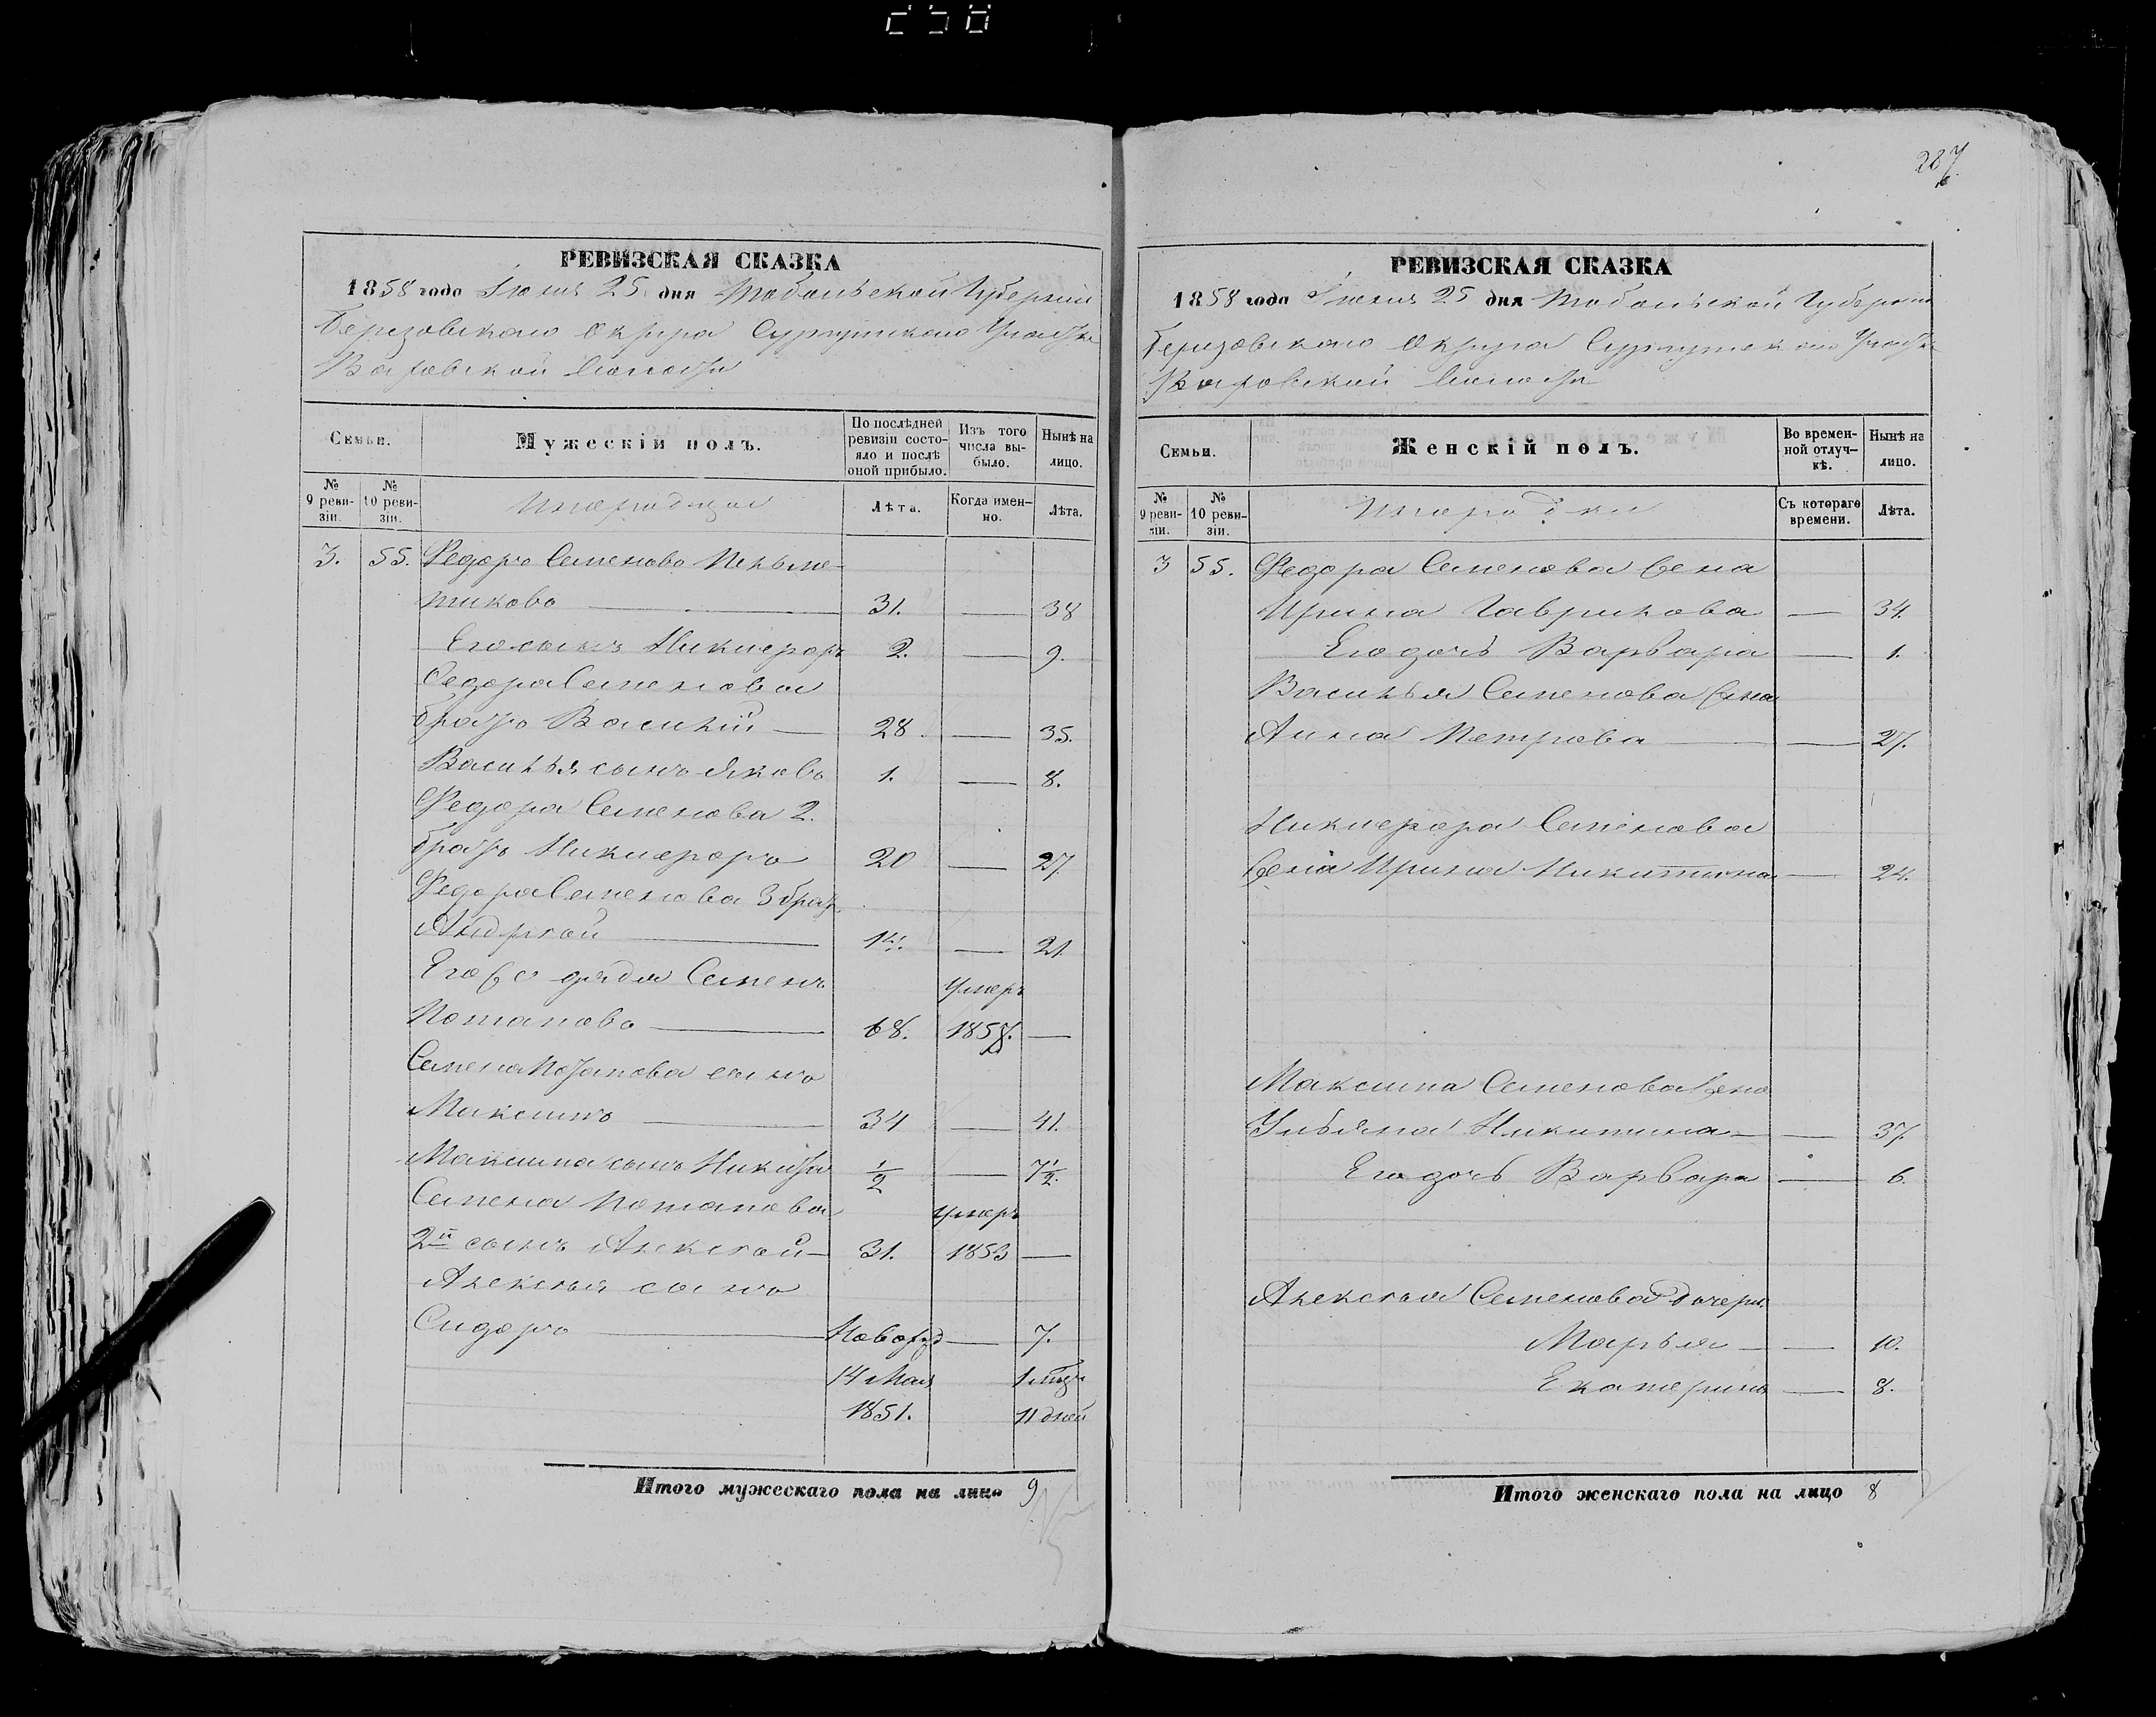 287
РЕВИЗСКАЯ СКАЗКА
1858 года Іюня 25 дня Тобольской Губерніи
Березовскаго Округа Сургутскаго Участка
Ваховской Волости
Семьи.
Мужескій полъ.
По послѣдней ревизіи состояло и послѣ оной прибыло.
Изъ того числа выбыло.
Нынѣ на лицо.
№ 9 ревизіи.
№ 10 ревизіи.
Лѣта.
Когда именно.
Лѣта.
3. 55. Федоръ Семеновъ
31. — 38
Его сынъ Никифоръ 2. — 9.
Федора Семенова
братъ Василій — 28. — 35.
Василья сынъ Яковъ 1. — 8.
Федора Семенова 2.
братъ Никифоръ 20 — 27.
Федора Семенова 3 братъ
Андрей — 14. — 21.
Его же дядя Семенъ умеръ
Потаповъ — 68. 1857. —
Семена Потапова сынъ
Максимъ — 34 — 41.
Максима сынъ Никита 1/2 — 7 1/2.
Семена Потапова умеръ
2й сынъ Алексѣй — 31. 1853 —
Алексѣя сынъ
Сидоръ — Новорожд — 7.
14 Мая 1 мѣс
1851. 11 дней
Итого мужескаго пола на лицо 9
РЕВИЗСКАЯ СКАЗКА
1858 года Іюня 25 дня Тобольской Губерніи
Березовскаго Округа Сургутскаго Участка
Ваховской Волости
Семьи.
Женскій полъ.
Во временной отлучкѣ.
Нынѣ на лицо.
№ 9 ревизіи.
№ 10 ревизіи.
Инородки
Съ котораго времени.
Лѣта.
3 55. Федора Семенова жена
Ирина Гаврилова — 34.
Его дочь Варвара — 1.
Василья Семенова жена
Анна Петрова — 27.
Никифора Семенова
жена Ирина Никитина — 24.
Максима Семенова жена
Ульяна Никитина — 37.
Его дочь Варвара — 6.
Алексѣя Семенова дочери
Марья — 10.
Екатерина — 8.
Итого женскаго пола на лицо 8